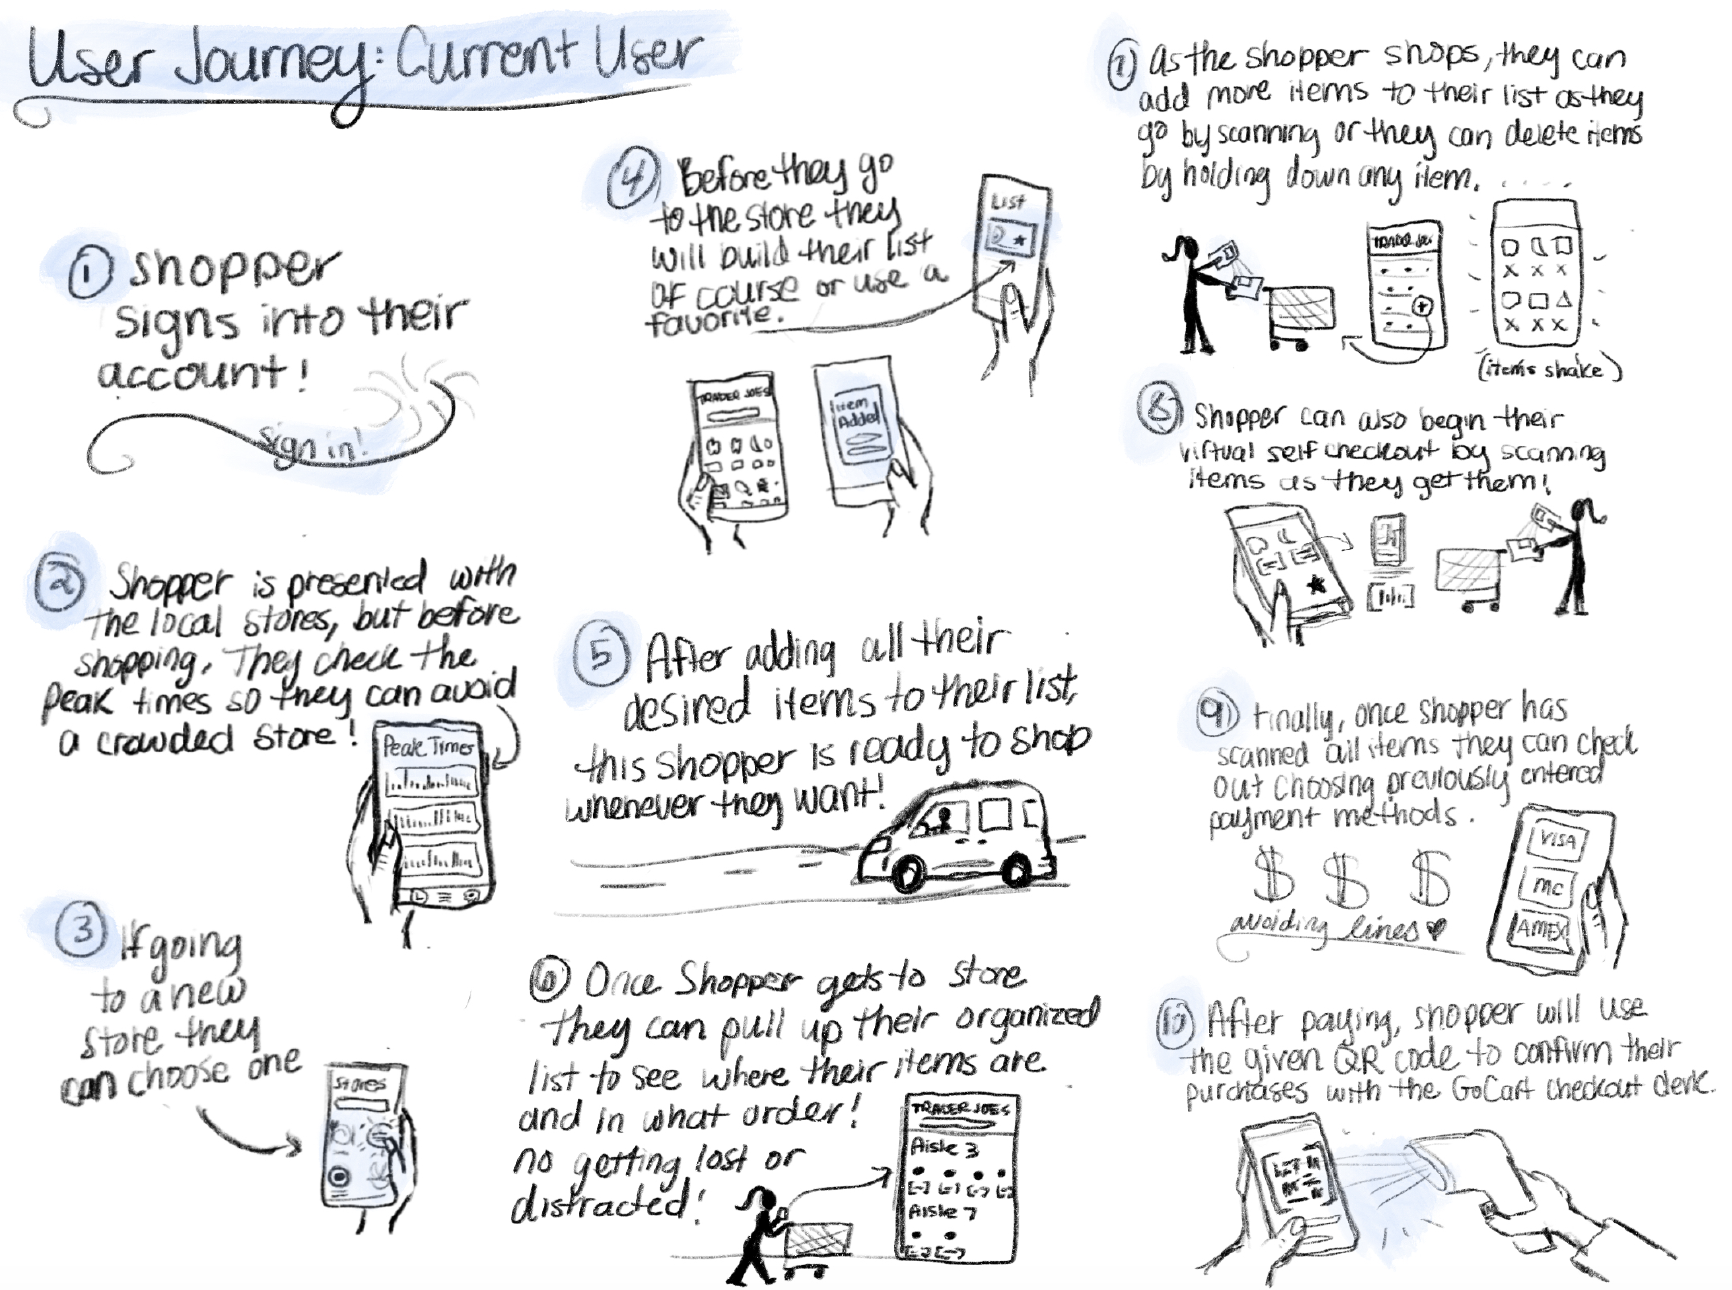 User Journey: Current User
① Shopper
signs into their
account!
sign in!
② Shopper is presented with
the local stores, but before
shopping, They check the
Peak times so they can avoid
a crowded store!
Peak Times
③ If going
to a new
store they
can choose one
Stores
④ Before they go
to the store they
will build their list
of course or use a
favorite.
List
TRADER JOES
Item
Added
⑤ After adding all their
desired items to their list,
this shopper is ready to shop
whenever they want!
⑥ Once Shopper gets to store
they can pull up their organized
list to see where their items are
and in what order!
no getting lost or
distracted!
TRADER JOES
Aisle 3
Aisle 7
⑦ As the shopper shops, they can
add more items to their list as they
go by scanning or they can delete items
by holding down any item.
TRADER JOE
(items shake)
⑧ Shopper can also begin their
virtual self checkout by scanning
items as they get them!
⑨ Finally, once shopper has
scanned all items they can check
out choosing previously entered
payment methods.
$ $ $
avoiding lines ♥
VISA
MC
AMEX
⑩ After paying, shopper will use
the given QR code to confirm their
purchases with the GoCart checkout clerk.